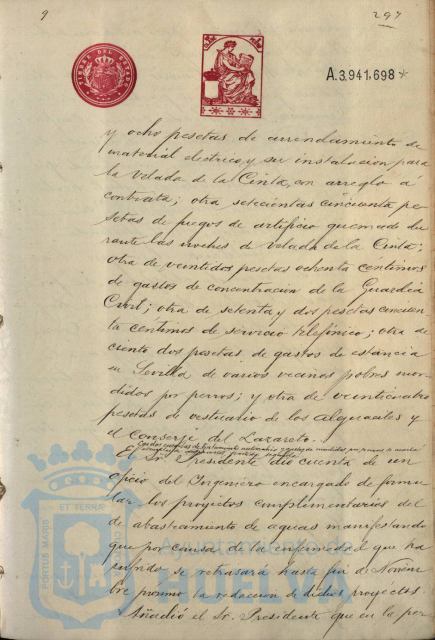 9
297
TIMBRE DEL ESTADO
A.3.941.698*
y ocho pesetas de arrendamiento de
material eléctrico, y su instalacion para
la Velada de la Cinta, con arreglo a
contrata; otra setecientas cincuenta pe
setas de fuegos de artificio quemado du
rante las noches de Velada de la Cinta;
otra de veintidos pesetas ochenta céntimos
de gastos de concentracion de la Guardia
Civil; otra de setenta y dos pesetas cincuen
ta céntimos de servicio telefónico; otra de
ciento dos pesetas, de gastos de estáncia
en Sevilla de varios vecinos pobres mor
didos por perros; y otra de veinticuatro
pesetas de vestuario de los alguaciles y
el Conserje del Lazareto.
El Sr. Presidente dió cuenta de un
oficio del Ingeniero encargado de formu
lar los proyectos complimentarios del
de abastecimiento de aguas manifestando
que por causa de la enfermedad que ha
sufrido, se retrasará hasta fin de Noviem
bre próximo la redaccion de dichos proyectos.
Añadió el Sr. Presidente que en la per
PORTUS MARIS
ET TERRAE
Ayuntamiento de
HUELVA